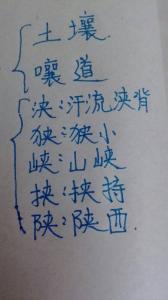 土壤
嚷道
浃:汗流浃背
狭:狭小
峡:山峡
挟:挟持
陕:陕西.